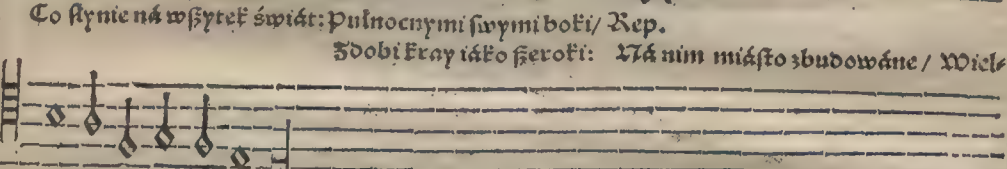 Co słynie ná wszytek świát: Pułnocnymi swymi boki/ Rep.
Zdobi kray iáko szeroki: Ná nim miásto zbudowáne/ Wiel-